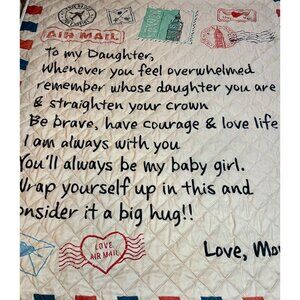 AIR MAIL
To my Daughter,
Whenever you feel overwhelmed
remember whose daughter you are
& straighten your crown
Be brave, have courage & love life
I am always with you
You'll always be my baby girl.
Wrap yourself up in this and
onsider it a big hug!!
LOVE
AIR MAIL
Love, Mo